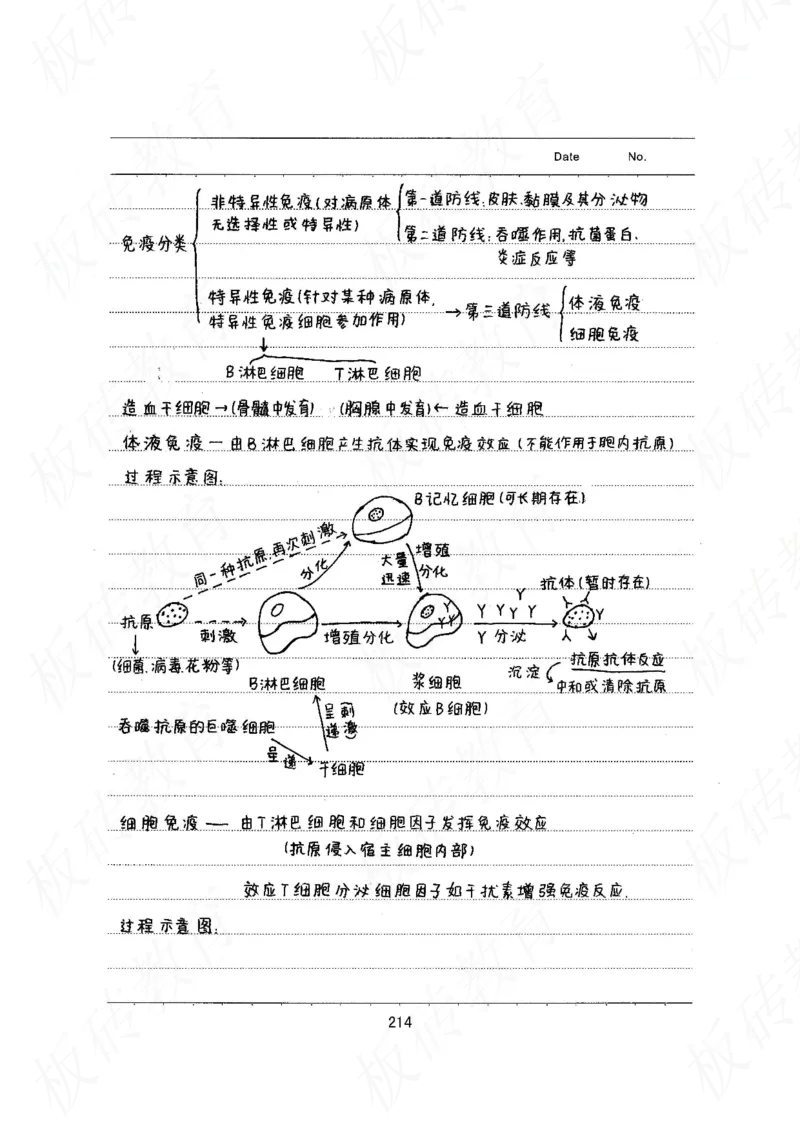 Date No.
非特异性免疫(对病原体
无选择性或特异性)
第一道防线:皮肤、黏膜及其分泌物
第二道防线:吞噬作用,抗菌蛋白、
炎症反应等
免疫分类
特异性免疫(针对某种病原体,
特异性免疫细胞参加作用)
→第三道防线
体液免疫
细胞免疫
B淋巴细胞 T淋巴细胞
造血干细胞→(骨髓中发育) (胸腺中发育)←造血干细胞
体液免疫—由B淋巴细胞产生抗体实现免疫效应(不能作用于胞内抗原)
过程示意图:
B记忆细胞(可长期存在)
同一种抗原,再次刺激
分化
大量
迅速
增殖
分化
抗体(暂时存在)
抗原
刺激
增殖分化
Y分泌
(细菌、病毒、花粉等)
B淋巴细胞
浆细胞
(效应B细胞)
沉淀
抗原抗体反应
中和或清除抗原
呈递
(刺激)
吞噬抗原的巨噬细胞
呈递
干细胞
细胞免疫 — 由T淋巴细胞和细胞因子发挥免疫效应
(抗原侵入宿主细胞内部)
效应T细胞分泌细胞因子如干扰素增强免疫反应.
过程示意图:
214
板砖教育